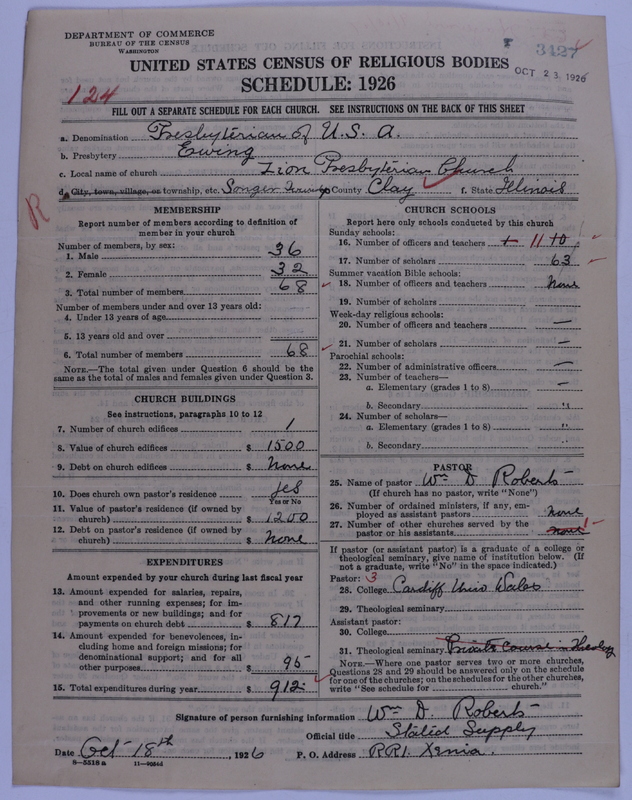 DEPARTMENT OF COMMERCE
BUREAU OF THE CENSUS
WASHINGTON
3427
OCT 23 1926
UNITED STATES CENSUS OF RELIGIOUS BODIES
SCHEDULE: 1926
124
FILL OUT A SEPARATE SCHEDULE FOR EACH CHURCH. SEE INSTRUCTIONS ON THE BACK OF THIS SHEET
a. Denomination Presbyterian of U. S. A.
b. Presbytery Ewing
c. Local name of church Zion Presbyterian Church
d. City, town, village, or township, etc. Songer Township County Clay f. State Illinois
R
MEMBERSHIP
Report number of members according to definition of
member in your church
Number of members, by sex:
1. Male 36
2. Female 32
3. Total number of members 68
Number of members under and over 13 years old:
4. Under 13 years of age
5. 13 years old and over
6. Total number of members 68
NOTE.—The total given under Question 6 should be
same as the total of males and females given under Question 3.
CHURCH BUILDINGS
See instructions, paragraphs 10 to 12
7. Number of church edifices 1
8. Value of church edifices $ 1500
9. Debt on church edifices $ None
10. Does church own pastor's residence yes
Yes or No
11. Value of pastor's residence (if owned by
church) $ 1200
12. Debt on pastor's residence (if owned by
church) $ None
EXPENDITURES
Amount expended by your church during last fiscal year
13. Amount expended for salaries, repairs,
and other running expenses; for im-
provements or new buildings; and for
payments on church debt $ 817
14. Amount expended for benevolences, in-
cluding home and foreign missions; for
denominational support; and for all
other purposes $ 95
15. Total expenditures during year $ 912
CHURCH SCHOOLS
Report here only schools conducted by this church
Sunday schools:
16. Number of officers and teachers 11 10
17. Number of scholars 63
Summer vacation Bible schools:
18. Number of officers and teachers None
19. Number of scholars
Week-day religious schools:
20. Number of officers and teachers —
21. Number of scholars —
Parochial schools:
22. Number of administrative officers —
23. Number of teachers—
a. Elementary (grades 1 to 8) —
b. Secondary "
24. Number of scholars—
a. Elementary (grades 1 to 8) "
b. Secondary "
PASTOR
25. Name of pastor Wm D Roberts
(If church has no pastor, write "None")
26. Number of ordained ministers, if any, em-
ployed as assistant pastors None
27. Number of other churches served by the
pastor or his assistants None 1
If pastor (or assistant pastor) is a graduate of a college or
theological seminary, give name of institution below. (If
not a graduate, write "No" in the space indicated.)
Pastor: 3
28. College Cardiff Univ Wales
29. Theological seminary
Assistant pastor:
30. College
31. Theological seminary Course in Theology
NOTE.—Where one pastor serves two or more churches,
Questions 28 and 29 should be answered only on the schedule
for one of the churches; on the schedules for the other churches,
write "See schedule for church."
Signature of person furnishing information Wm D. Roberts
Official title Stated Supply
Date Oct 18th, 1926 P. O. Address RR1. Xenia.
8—5518 a